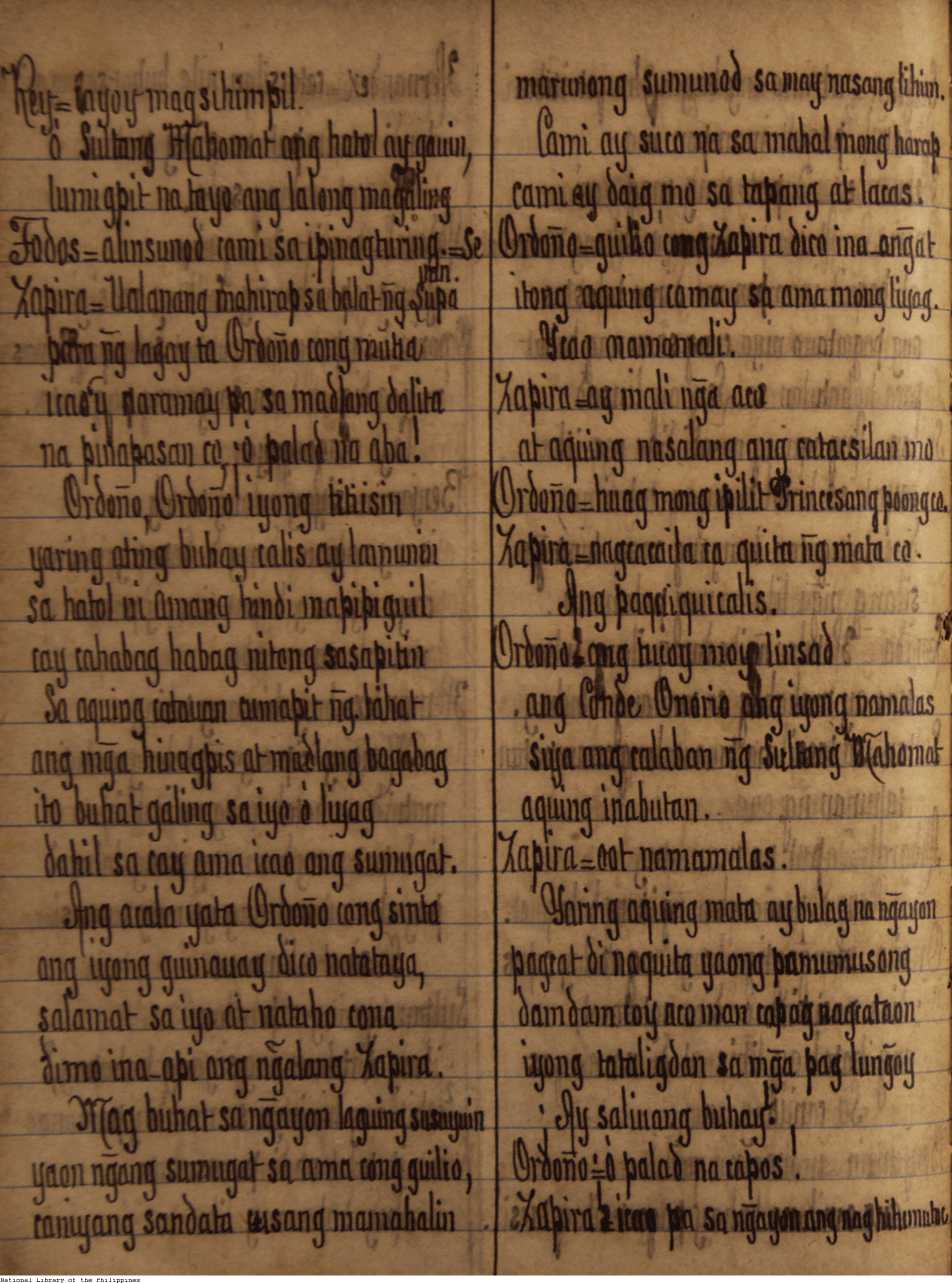 Rey= tayoy magsihimpil.
ó Sultang Mahomat ang hatol ay gauin,
lumigpit na tayo ang lalong magaling
Todos= alinsunod cami sa ipinagturing.=Se
Zapira= Ualanang mahirap sa balat ñg Lupa
para ñg lagay ta Ordoño cong mutia
icao'y paramay pa sa madlang dalita
na pinapasan co, ó palad na aba!
Ordoño, Ordoño iyong titisin
yaring ating buhay calis ay
sa hatol ni amang hindi mapipiguil
cay cahabag habag nitong sasapitin
Sa aquing catauan cumapit ñg lahat
ang mg̃a hinagpis at madlang bagabag
ito buhat galing sa iyo ó liyag
dahil sa cay ama icao ang sumugat.
Ang acala yata Ordoño cong sinta
ang iyong guinauay dico natataya,
salamat sa iyo at nataho cona
dimo ina-api ang ng̃alang Zapira.
Mag buhat sa ng̃ayon laguing susuyuin
yaon ng̃ang sumugat sa ama cong guilio,
caniyang sandata usang mamahalin
marunong sumunod sa may nasang lihim.
Cami ay suco na sa mahal mong harap
cami ay daig mo sa tapang at lacas.
Ordoño=guilio cong Zapira dico ina-ang̃at
itong aquing camay sa ama mong liyag.
Ycao namamali.
Zapira=ay mali ng̃a aco
at aquing nasalang ang catacsilan mo
Ordoño=huag mong ipilit Princesang poong co.
Zapira=nagcacaila ca quita ñg mata co.
Ang pagquiquicalis.
Ordoño= ang ticoy moy linsad
ang Conde Onorio ang iyong namalas
siya ang calaban ñg Sultang Mahomat
aquing inabutan.
Zapira=oot namamalas.
Yaring aquing mata ay bulag na ng̃ayon
pagcat di naquita yaong pamumusong
damdam coy aco man capag nagcataon
iyong tataligdan sa mg̃a pag lung̃oy
¡Ay saliuang buhay!
Ordoño=ó palad na capos!
Zapira= icao pa sa ng̃ayon ang nag hihimutoc
National Library of the Philippines